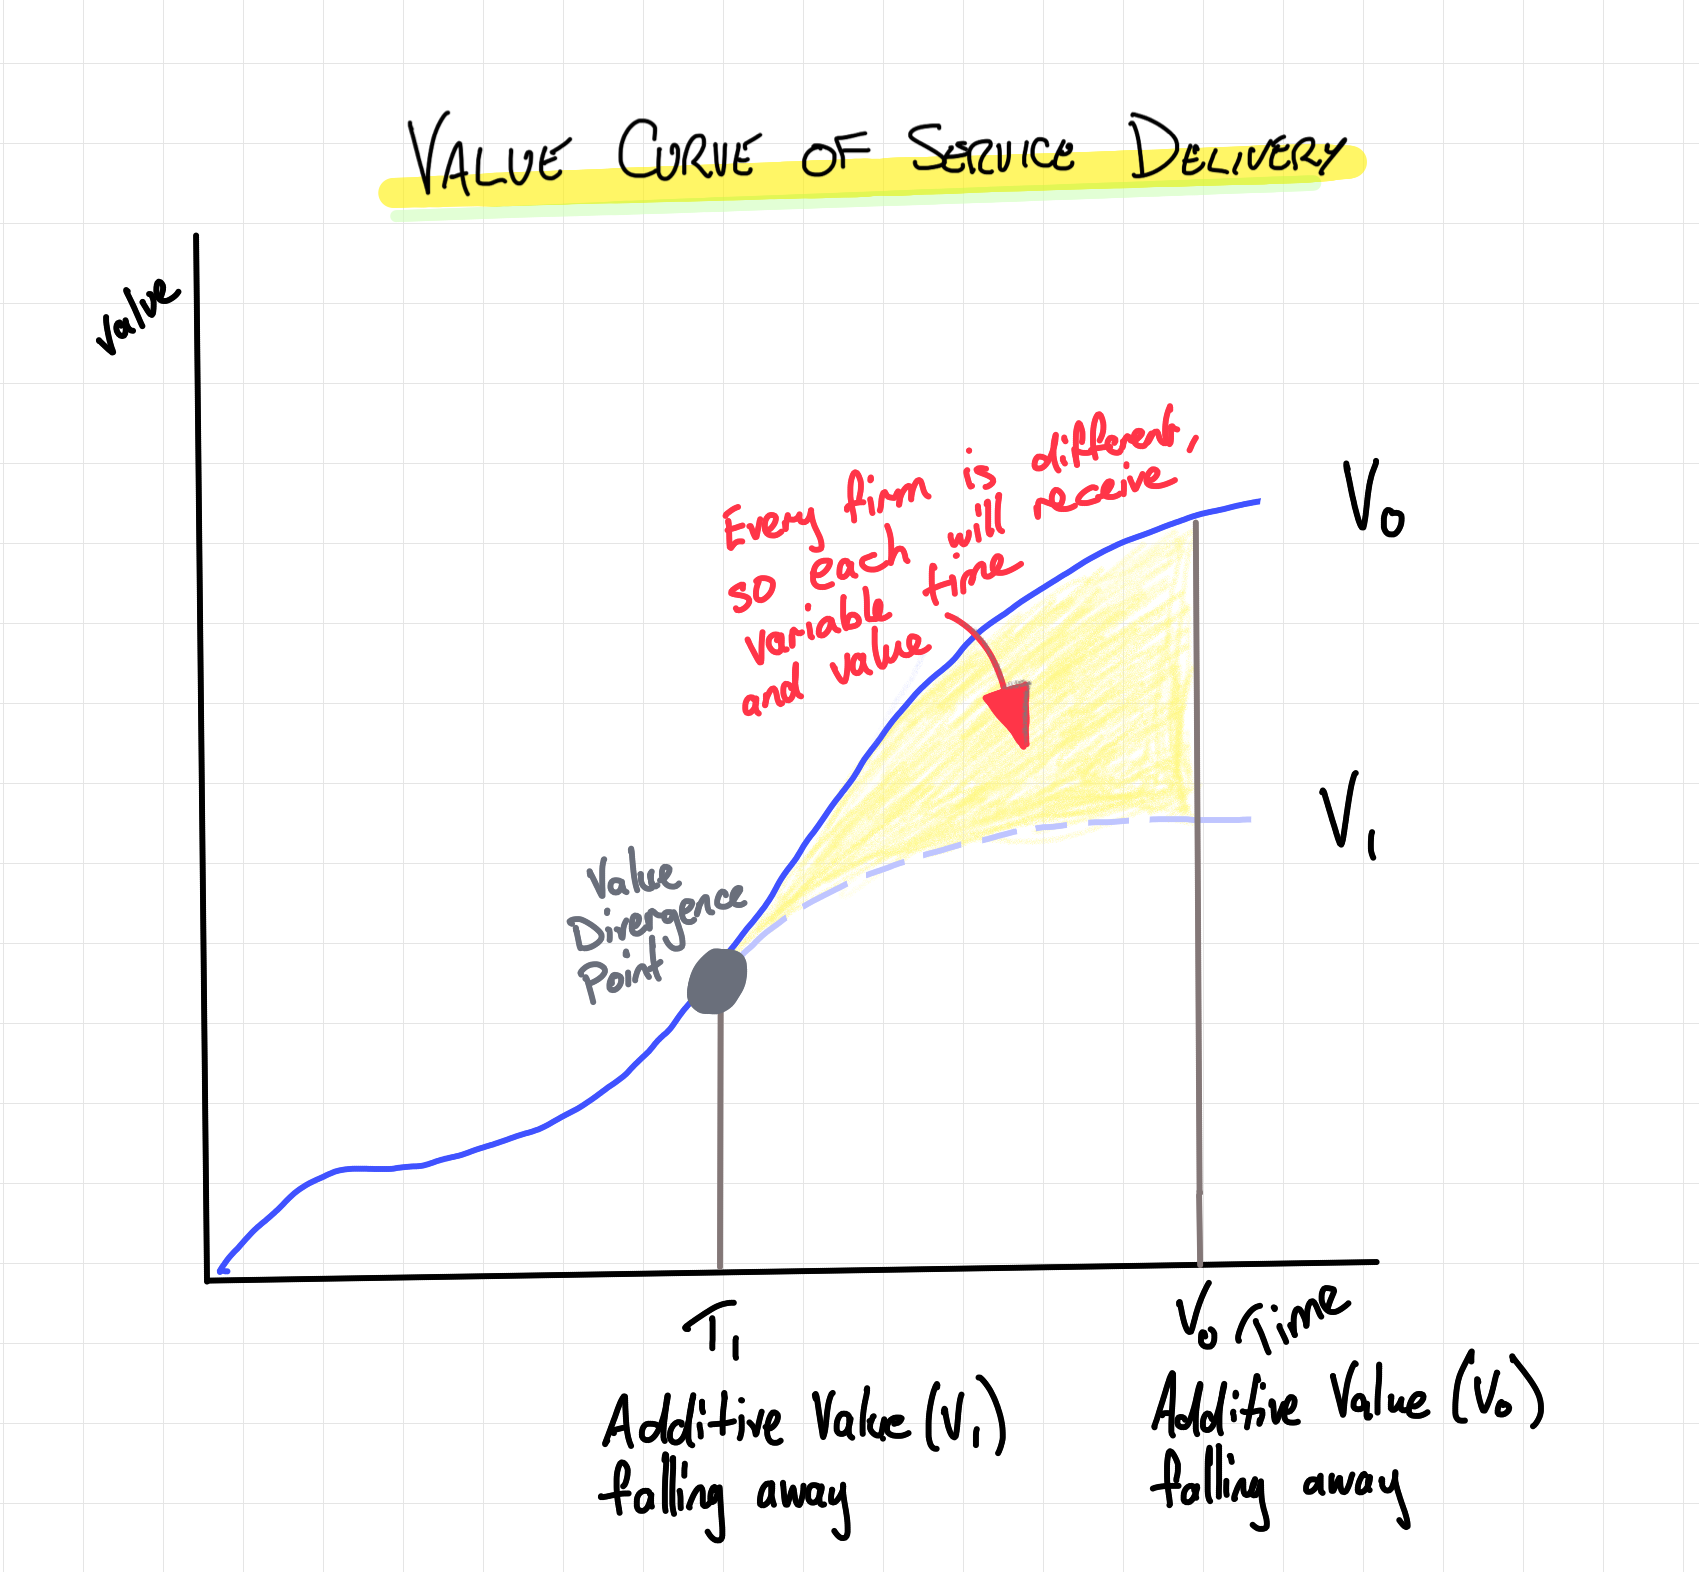 VALUE CURVE OF SERVICE DELIVERY
Value
Every firm is different,
so each will receive
variable time
and value
V0
V1
Value
Divergence
Point
T1
V0
Time
Additive Value (V1)
falling away
Additive Value (V0)
falling away